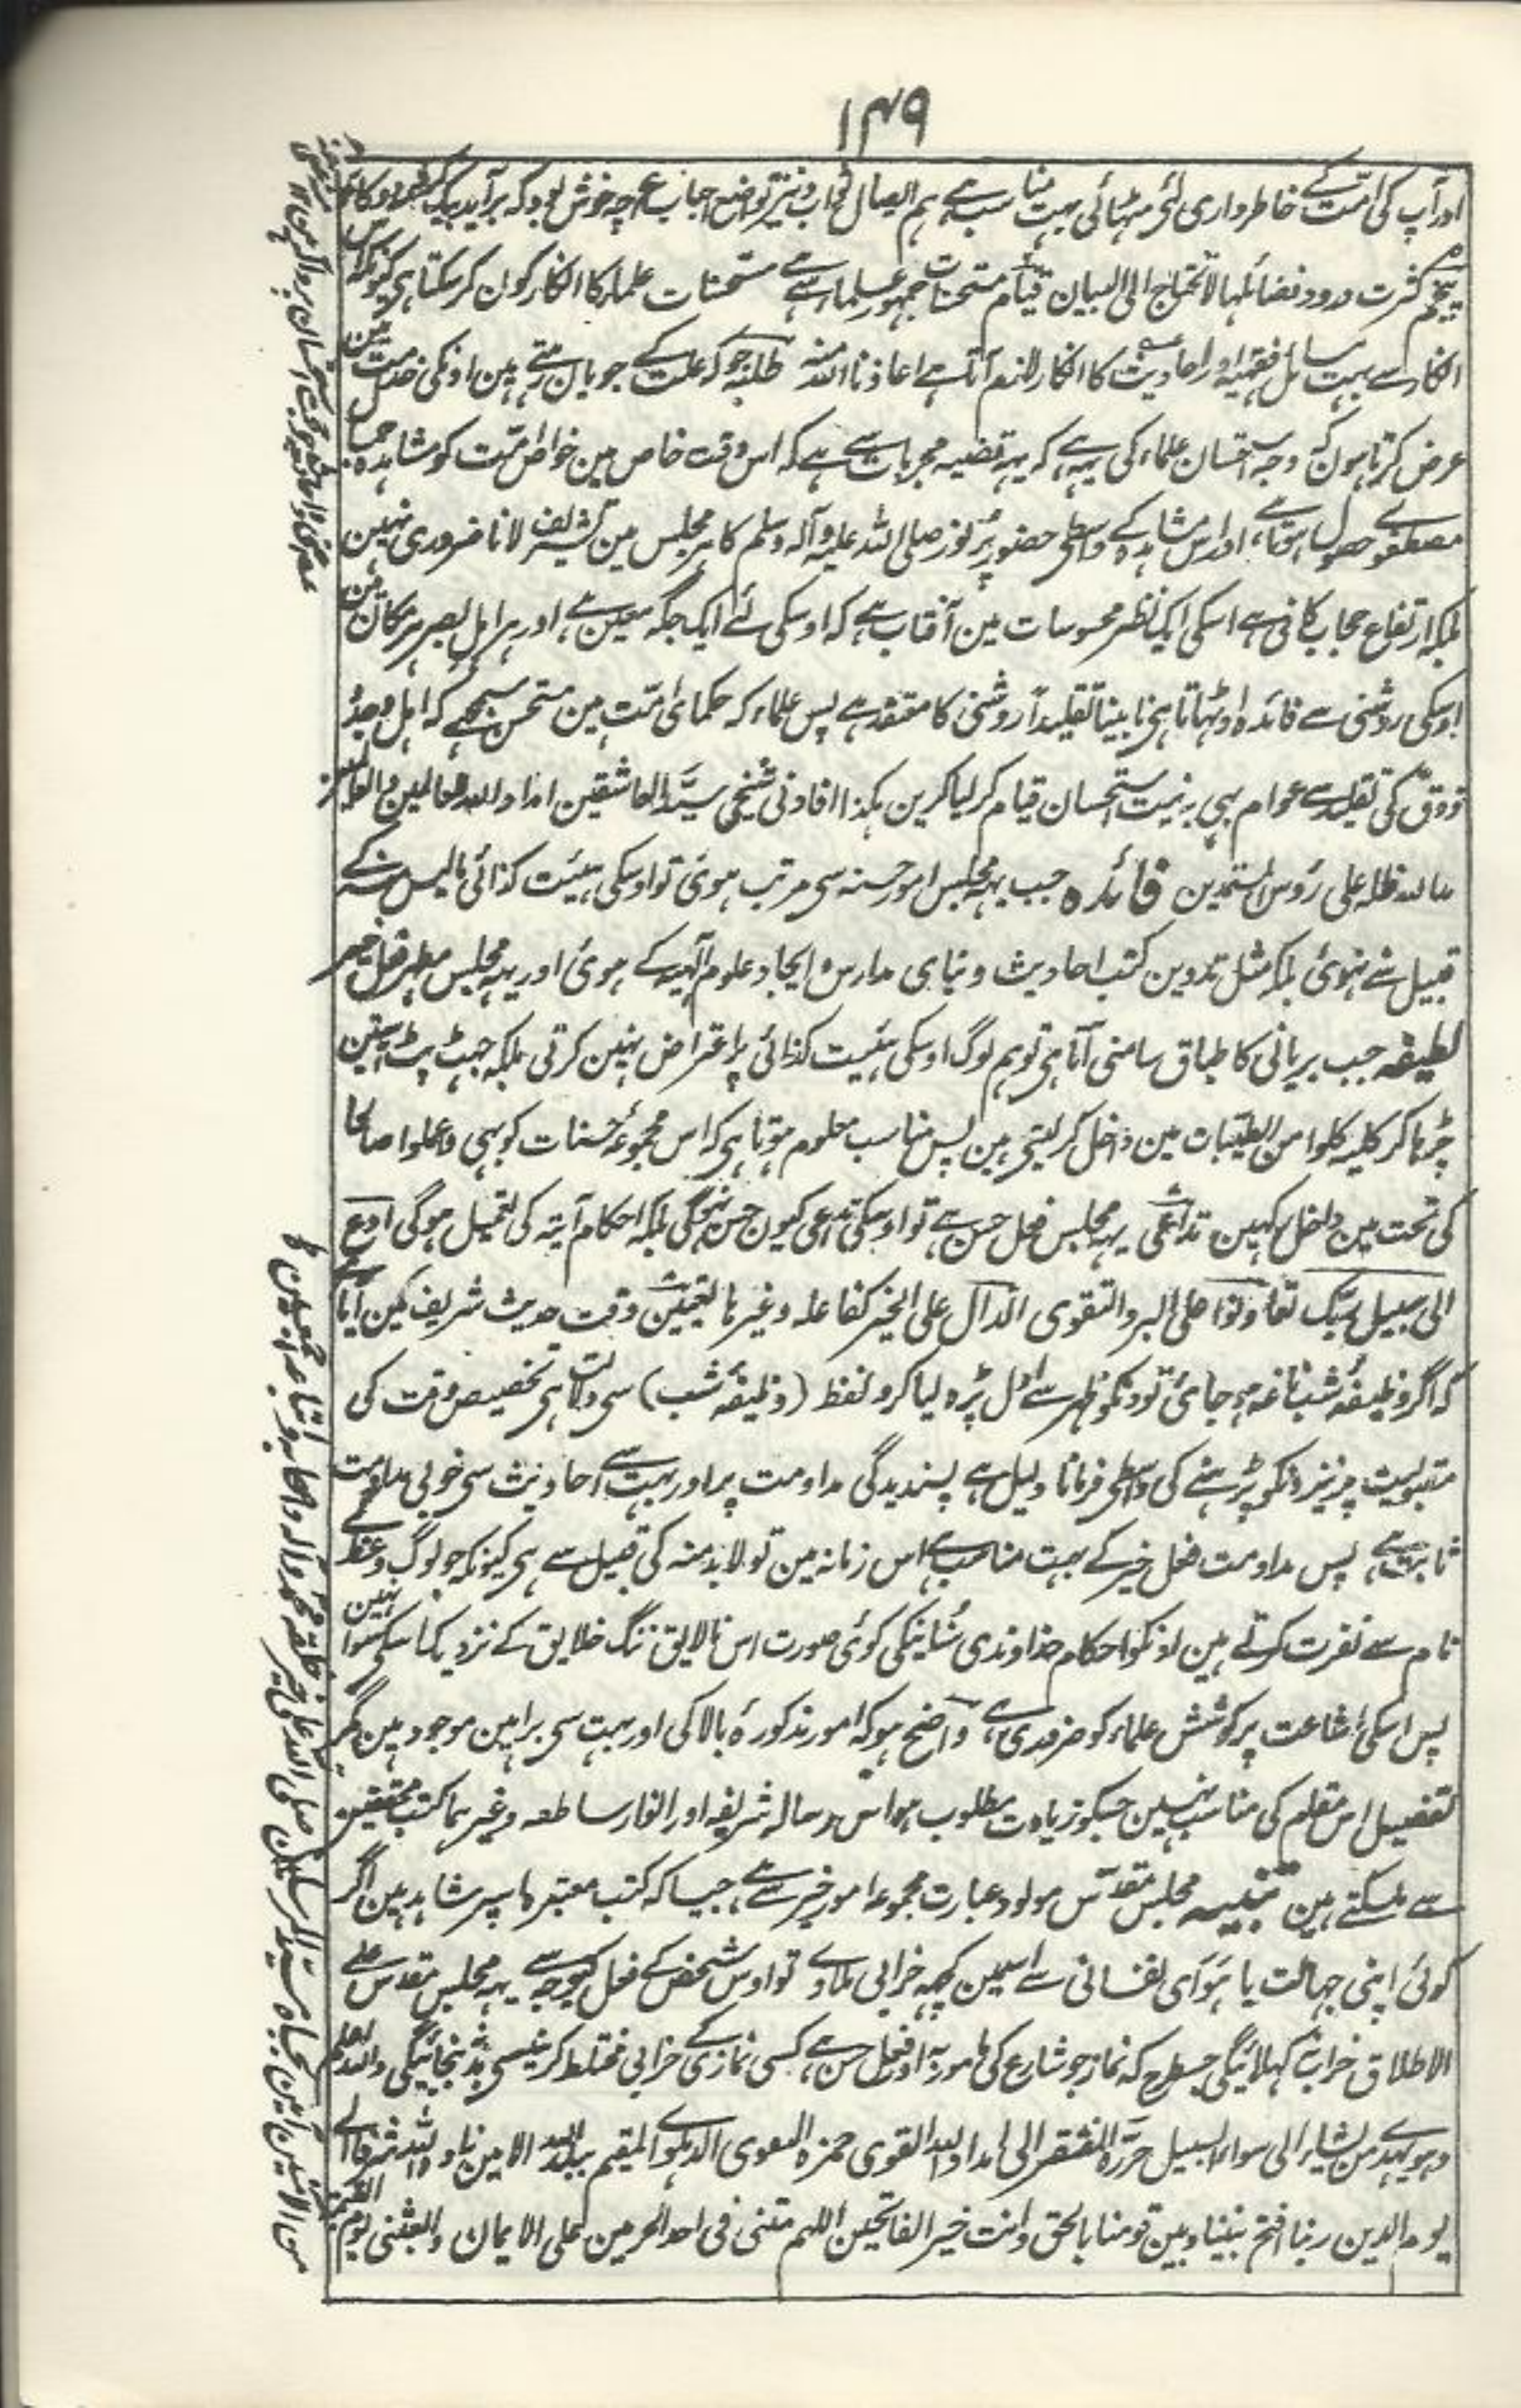 ۱۴۹
اور آپ کی امت کے خاطرداری لئی مٹہائی بہت مناسب ہے ہم ایصال ثواب و نیز تواضع احباب ع چہ خوش بود کہ برآید بیک کرشمہ دو کار
پنجم کثرت درود فضائلہا لا تحتاج الی البیان قیام مستحسنات جمہور علماء سے ہے مستحسنات علماء کا انکار کون کر سکتا ہی کیونکہ اس
انکار سے بہت مسائل فقہیہ اور احادیث کا انکار لازم آتا ہے اعاذنا اللہ منہ طلبہ جو کہ علت کے جویان رہتے ہین اونکی خدمت مین
عرض کرتا ہون کہ وجہ استحسان علماء کی یہ ہے کہ یہہ قضیہ مجربات سے ہے کہ اس وقت خاص مین خواص امت کو مشاہدہ جمال
مصطفوی حصول ہوتا ہے اور اس مشاہدہ کے واسطی حضور پر نور صلی اللہ علیہ وآلہ وسلم کا ہر مجلس مین تشریف لانا ضروری نہین
بلکہ ارتفاع حجاب کافی ہے اسکی ایک نظیر محسوسات مین آفتاب ہے کہ اوسکی لئے ایک جگہ معین ہے اور ہر اہل بصر ہر مکان مین
اوسکی روشنی سے فائدہ اوٹہاتا ہی نابینا تقلیداً روشنی کا معتقد ہے پس علماء کہ حکمای امت ہین مستحسن سمجھے کہ اہل وجد و
ذوق کی تقلید سے عوام بہی بہ نیت استحسان قیام کر لیا کرین ہکذا افادنی شیخی سید العاشقین امداد اللہ العالمین والطالبین
مد اللہ ظلہ علی رؤس المستمدین فائدہ جب یہہ مجلس امور حسنہ سی مرتب ہوئ تو اوسکی ہیئت کذائی ما لیس منہ کے
قبیل سے نہوئ بلکہ مثل تدوین کتب احادیث و بنای مدارس و ایجاد علوم آلیہ کے ہوئ اور یہہ مجلس مطہر فعل خیر
لطیفہ جب بریانی کا طباق سامنی آتا ہی تو ہم لوگ اوسکی ہیئت کذائی پر اعتراض نہین کرتی بلکہ جہٹ پٹ آستین
چڑہا کر کلیہ کلوا من الطیبات مین داخل کر لیتی ہین پس مناسب معلوم ہوتا ہی کہ اس مجموعۂ حسنات کو بہی واعملوا صالحا
کی تحت مین داخل کہین تداعی یہہ مجلس فعل حسن ہے تو اوسکی تداعی کیون حسن نہوگی بلکہ احکام آیتہ کی تعمیل ہوگی ادع
الی سبیل ربک تعاونوا علی البر والتقوی الدال علی الخیر کفاعلہ وغیرہا تعیین وقت حدیث شریف مین آیا ہے
کہ اگر وظیفۂ شب ناغہ ہو جائ تو دنکو ظہر سے اول پڑہ لیا کرو لفظ (وظیفۂ شب) سی دلالت ہی تخصیص وقت کی
مقبولیت پر نیز دنکو پڑہنے کی واسطی فرمانا دلیل ہے پسندیدگی مداومت پر اور بہت سے احادیث سی خوبی مداومت کے
ثابت ہے پس مداومت فعل خیر کے بہت مناسب ہے اس زمانہ مین تو لابد منہ کی قبیل سے ہی کیونکہ جو لوگ وعظ کے
نام سے نفرت کرتے ہین اونکو احکام خداوندی سنانیکی کوئی صورت اس نالایق ننگ خلایق کے نزدیک اسکی سوا نہین
پس اسکی اشاعت پر کوشش علماء کو ضروری ہے واضح ہو کہ امور مذکورۂ بالا کی اور بہت سی براہین موجود ہین مگر
تفصیل اس مقام کی مناسب نہین جسکو زیادت مطلوب ہو اس رسالہ شریفہ اور انوار ساطعہ وغیرہما کتب محققین
سے لے سکتے ہین تنبیہ مجلس مقدس مولود عبارت مجموعہ امور خیر سے ہے جیسا کہ کتب معتبرہ اسپر شاہد ہین اگر
کوئی اپنی جہالت یا ہوای نفسانی سے اسمین کچہہ خرابی ملادے تو اوس شخص کے فعل کیوجہ سے یہہ مجلس مقدس علی
الاطلاق خراب نہ کہلائیگی جسطرح کہ نماز جو شارع کی مامور بہ اور فعل حسن ہے کسی نمازی کے خرابی مختلط کرنیسی بد نہوجائیگی واللہ اعلم
وہو یہدی من یشاء الی سواء السبیل حررہ المفتقر الی امداد اللہ القوی حمزہ الدہلوی المقیم ببلد اللہ الامین زادہ اللہ شرفا الی
یوم الدین ربنا افتح بیننا وبین قومنا بالحق وانت خیر الفاتحین اللہم متنی فی احد الحرمین علی الایمان وابعثنی یوم القیمۃ